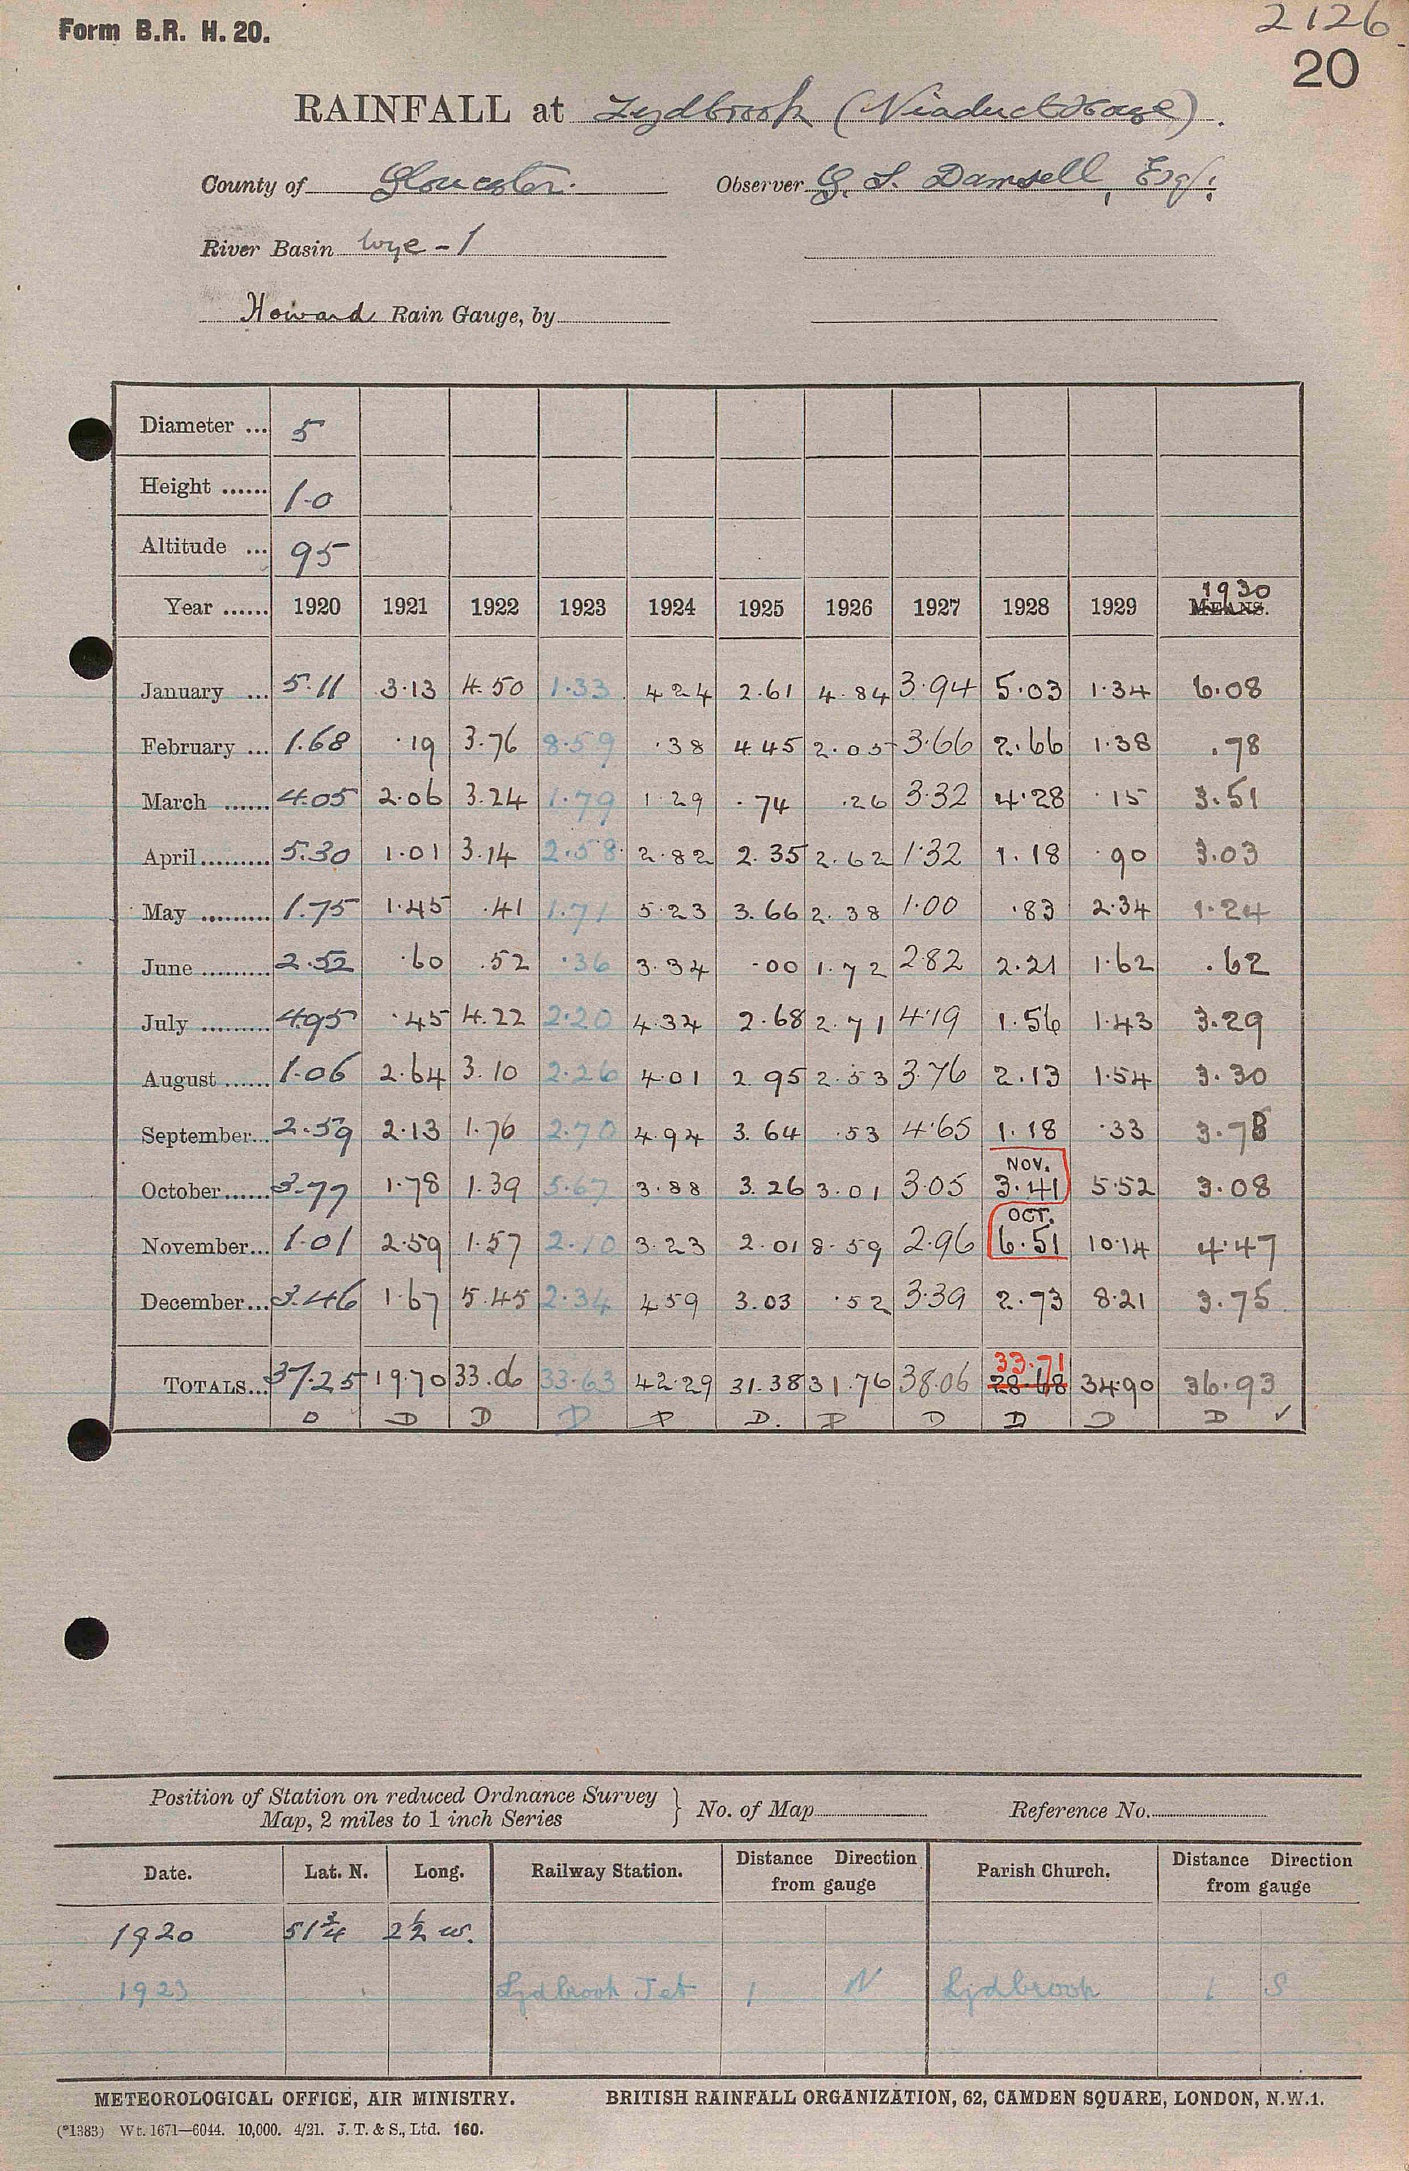 Form B.R. H. 20.
2126
20
RAINFALL at Lydbrook (Viaduct House).
County of Gloucester. Observer G. S. Damsell, Esq.
River Basin Wye - 1
Howard Rain Gauge, by
Diameter ... 5
Height ...... 1.0
Altitude ... 95
1930
Year ...... 1920 1921 1922 1923 1924 1925 1926 1927 1928 1929 MEANS.
January ... 5.11 3.13 4.50 1.33 4 24 2.61 4.84 3.94 5.03 1.34 6.08
February ... 1.68 .19 3.76 8.59 .38 4.45 2.05 3.66 2.66 1.38 .78
March ...... 4.05 2.06 3.24 1.79 1.29 .74 .26 3.32 4.28 .15 3.51
April ......... 5.30 1.01 3.14 2.58 2.82 2.35 2.62 1.32 1.18 .90 3.03
May ......... 1.75 1.45 .41 1.71 5.23 3.66 2.38 1.00 .83 2.34 1.24
June ......... 2.52 .60 .52 .36 3.34 .00 1.72 2.82 2.21 1.62 .62
July ......... 4.95 .45 4.22 2.20 4.34 2.68 2.71 4.19 1.56 1.43 3.29
August ...... 1.06 2.64 3.10 2.26 4.01 2.95 2.53 3.76 2.13 1.54 3.30
September... 2.59 2.13 1.76 2.70 4.94 3.64 .53 4.65 1.18 .33 3.78
NOV.
October ...... 3.77 1.78 1.39 5.67 3.88 3.26 3.01 3.05 3.41 5.52 3.08
OCT.
November... 1.01 2.59 1.57 2.10 3.23 2.01 8.59 2.96 6.51 10.14 4.47
December... 3.46 1.67 5.45 2.34 4 59 3.03 .52 3.39 2.73 8.21 3.75
33.71
TOTALS... 37.25 19.70 33.06 33.63 42.29 31.38 31.76 38.06 28.68 34.90 36.93
D D D D P D. P D D D D ✓
Position of Station on reduced Ordnance Survey
Map, 2 miles to 1 inch Series } No. of Map Reference No.
Date. Lat. N. Long. Railway Station. Distance Direction from gauge Parish Church. Distance Direction from gauge
1920 51 3/4 2 1/2 W.
1923 Lydbrook Jct 1 N Lydbrook 1 S
METEOROLOGICAL OFFICE, AIR MINISTRY. BRITISH RAINFALL ORGANIZATION, 62, CAMDEN SQUARE, LONDON, N.W.1.
(*1383) Wt. 1671—6044. 10,000. 4/21. J. T. & S., Ltd. 160.